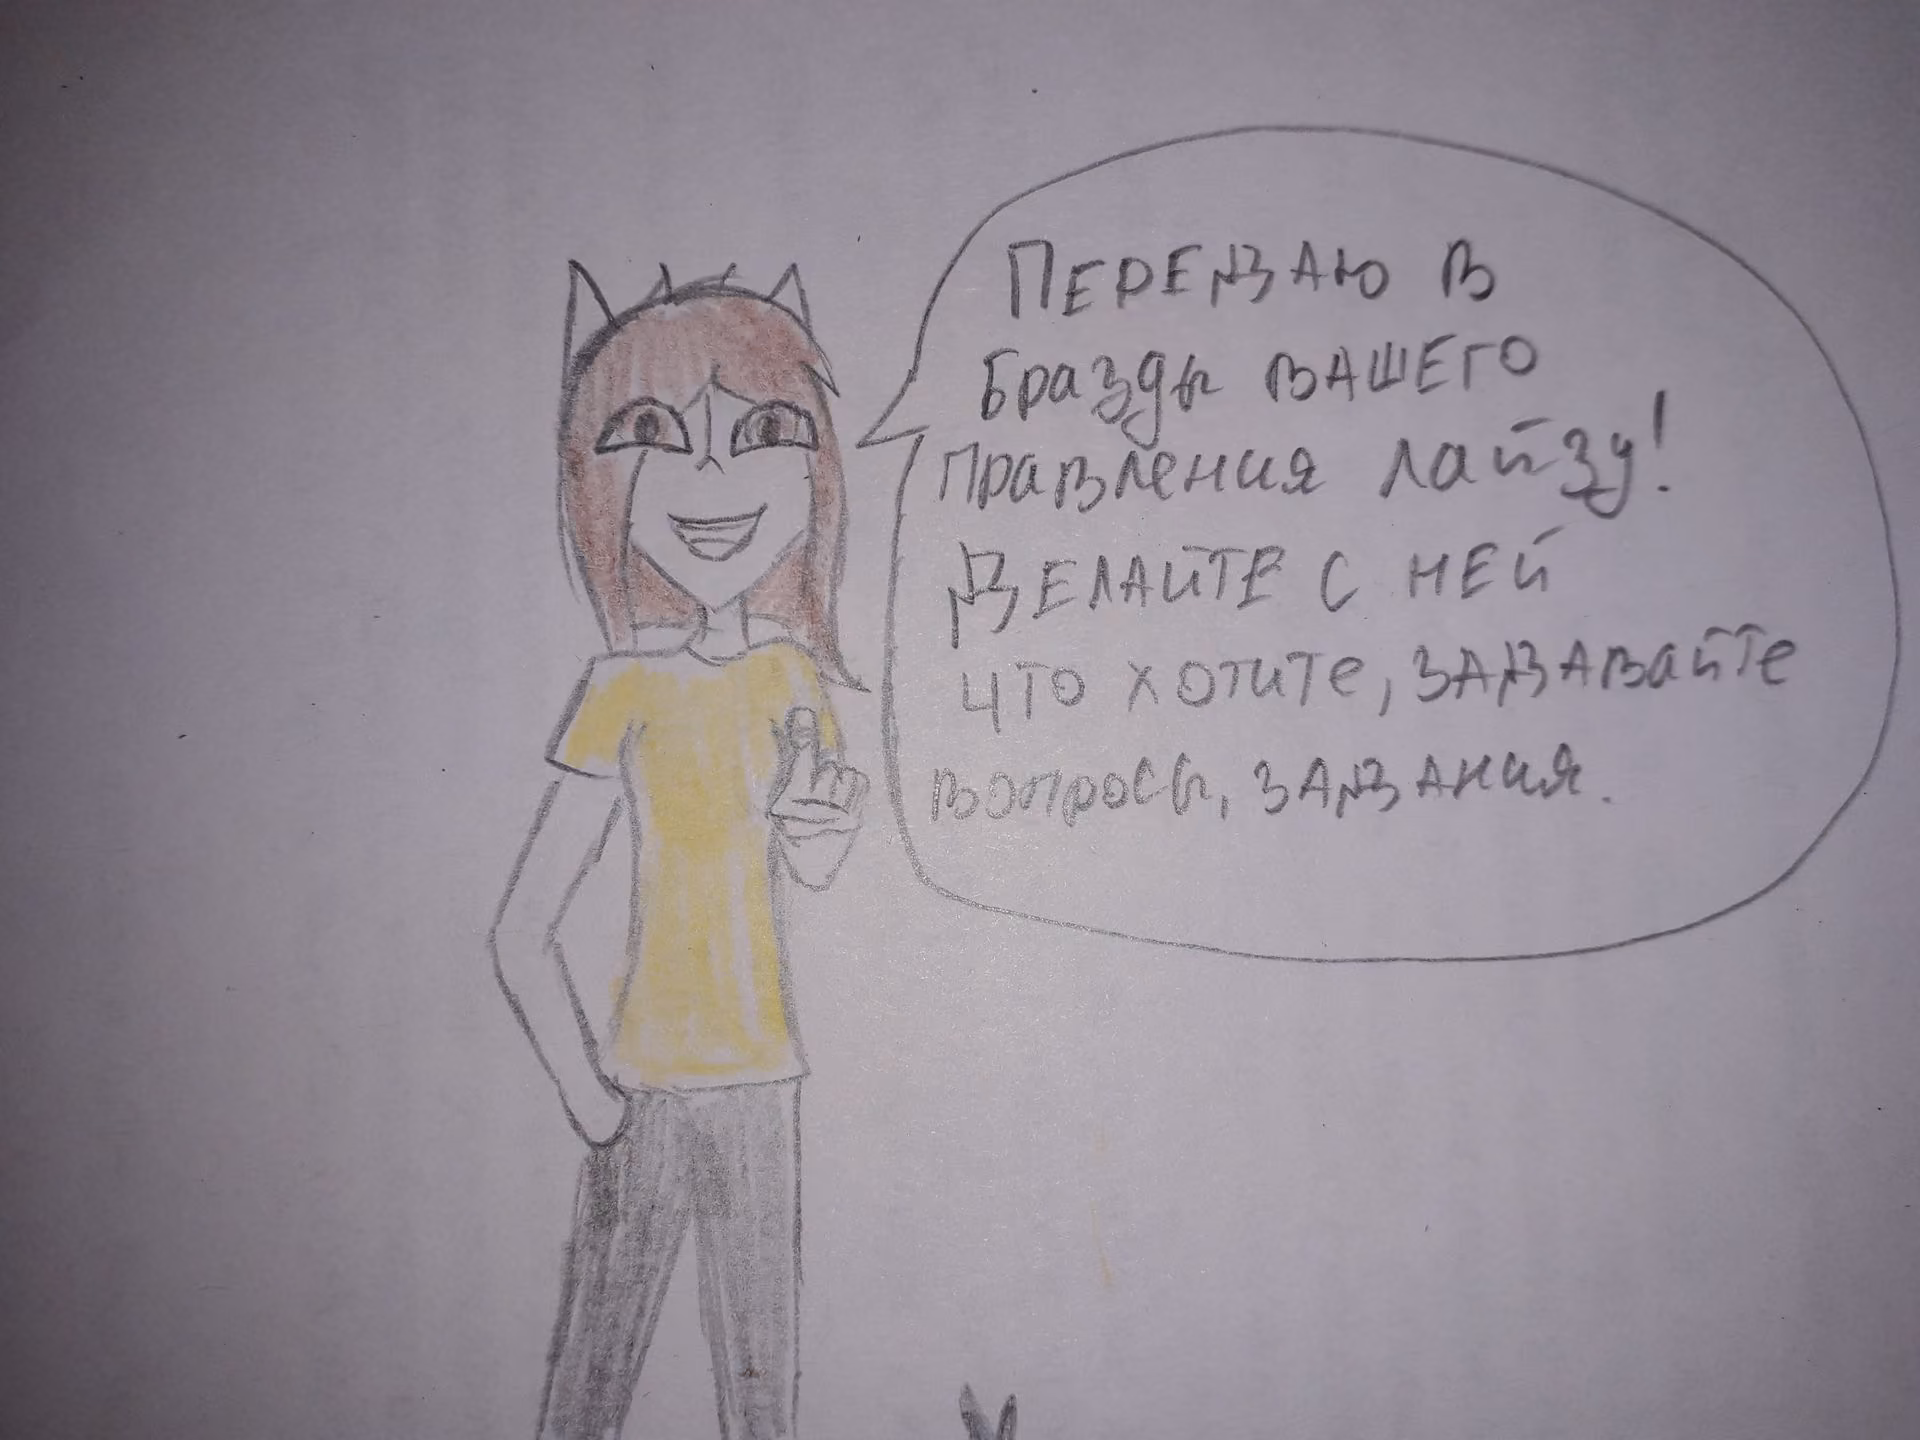 ПЕРЕДАЮ В
бразды ВАШЕГО
правления лайзу!
ДЕЛАЙТЕ С НЕЙ
что хотите, ЗАДАВАйте
вопросы, ЗАДАНИЯ.